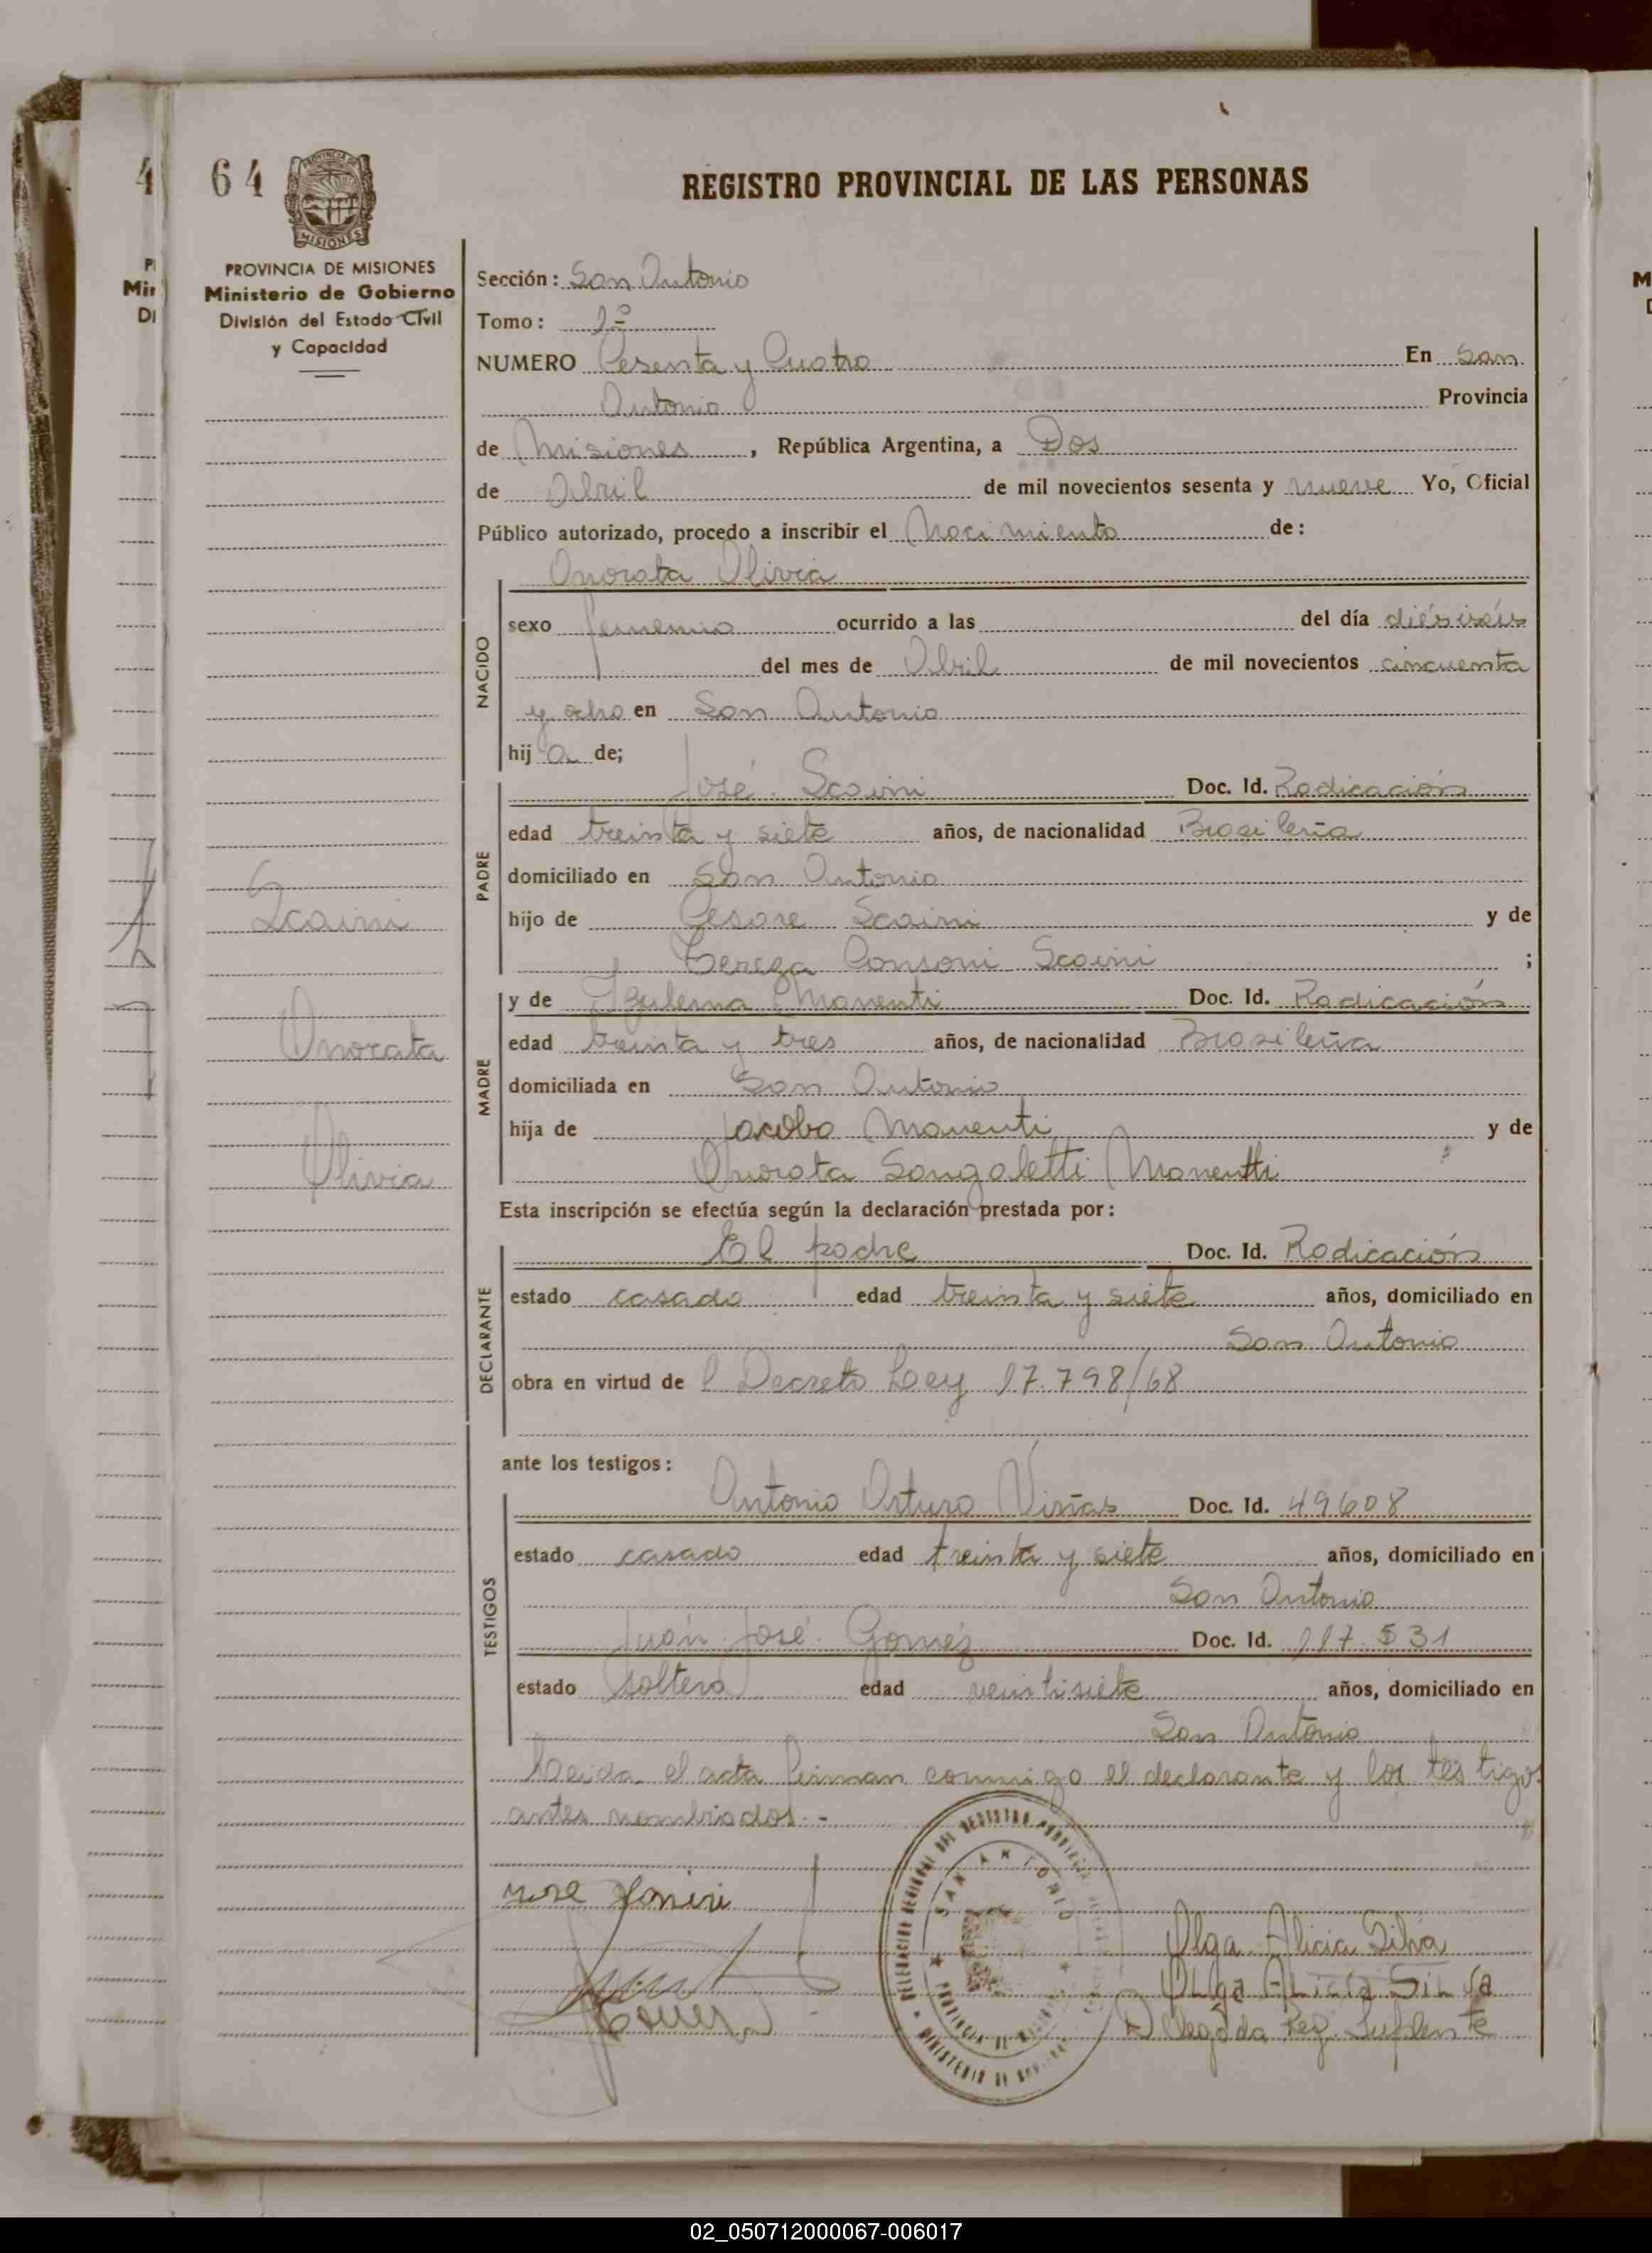 64
REGISTRO PROVINCIAL DE LAS PERSONAS
PROVINCIA DE MISIONES
Ministerio de Gobierno
División del Estado Civil
y Capacidad
Sección: San Antonio
Tomo: 1º
NUMERO Cesenta y Cuatro En San
Antonio Provincia
de Misiones, República Argentina, a Dos
de Abril de mil novecientos sesenta y nueve Yo, Oficial
Público autorizado, procedo a inscribir el Nacimiento de:
Onorata Olivia
NACIDO
sexo femenino ocurrido a las del día diésiséis
del mes de Abril de mil novecientos cincuenta
y ocho en San Antonio
hij a de;
PADRE
José Scaini Doc. Id. Radicación
edad treinta y siete años, de nacionalidad Brasileña
domiciliado en San Antonio
hijo de Cesare Scaini y de
Tereza Consoni Scaini ;
MADRE
y de Igulema Manenti Doc. Id. Radicación
edad treinta y tres años, de nacionalidad Brasileña
domiciliada en San Antonio
hija de Jacobo Manenti y de
Onorata Songaletti Manentti
Scaini
Onorata
Olivia
Esta inscripción se efectúa según la declaración prestada por:
DECLARANTE
El padre Doc. Id. Radicación
estado casado edad treinta y siete años, domiciliado en
San Antonio
obra en virtud de l Decreto Ley 17.798/68
ante los testigos:
TESTIGOS
Antonio Arturo Viñas Doc. Id. 49608
estado casado edad treinta y siete años, domiciliado en
San Antonio
Juán José Gomez Doc. Id. 117.531
estado soltero edad veintisiete años, domiciliado en
San Antonio
Leida el acta firman conmigo el declarante y los testigos
antes nombrados.-
SAN ANTONIO
Olga Alicia Silva
OLga ALicia SiLva
Delegada Reg. Suplente
02_050712000067-006017